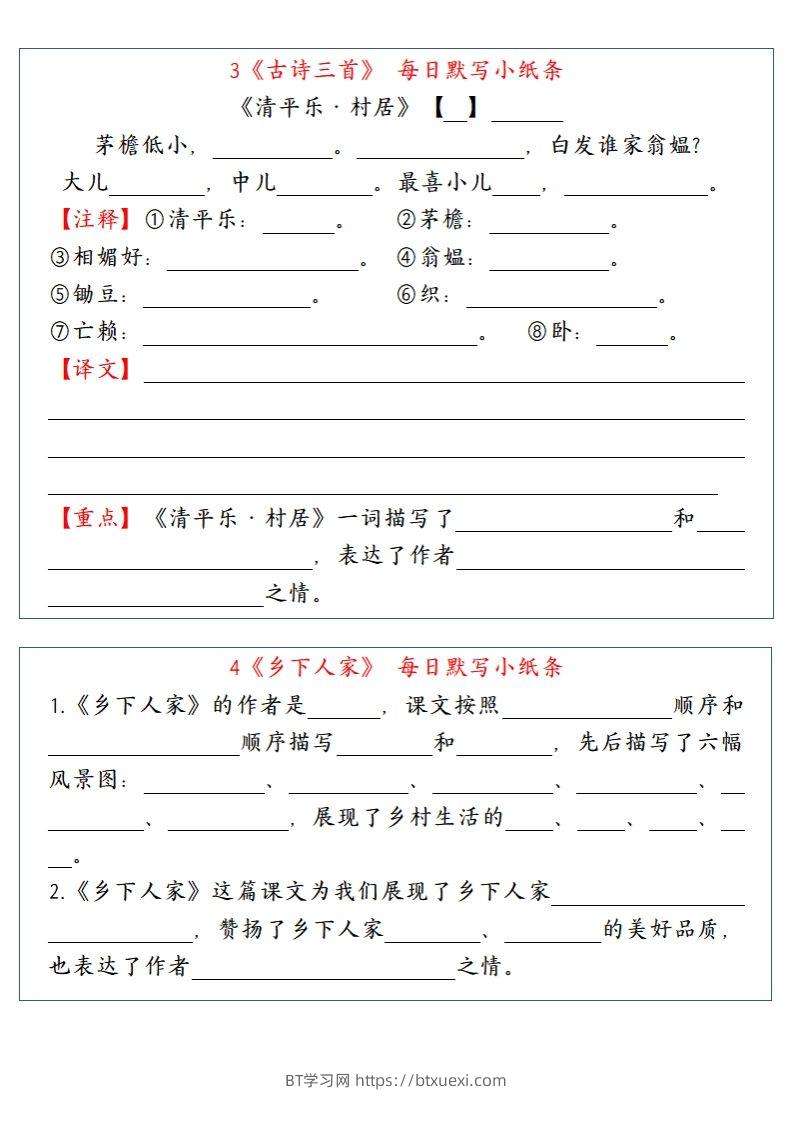 3《古诗三首》 每日默写小纸条
《清平乐·村居》【__】______
茅檐低小，__________。______________，白发谁家翁媪?
大儿________，中儿________。最喜小儿____，____________。
【注释】①清平乐：______。 ②茅檐：__________。
③相媚好：________________。 ④翁媪：__________。
⑤锄豆：______________。 ⑥织：________________。
⑦亡赖：____________________________。 ⑧卧：______。
【译文】__________________________________________________
__________________________________________________________
__________________________________________________________
________________________________________________________
【重点】《清平乐·村居》一词描写了__________________和____
______________________，表达了作者________________________
__________________之情。
4《乡下人家》 每日默写小纸条
1.《乡下人家》的作者是______，课文按照______________顺序和
________________顺序描写________和________，先后描写了六幅
风景图：__________、__________、__________、__________、__
________、__________，展现了乡村生活的____、____、____、__
__。
2.《乡下人家》这篇课文为我们展现了乡下人家________________
____________，赞扬了乡下人家________、________的美好品质，
也表达了作者______________________之情。
BT学习网 https://btxuexi.com